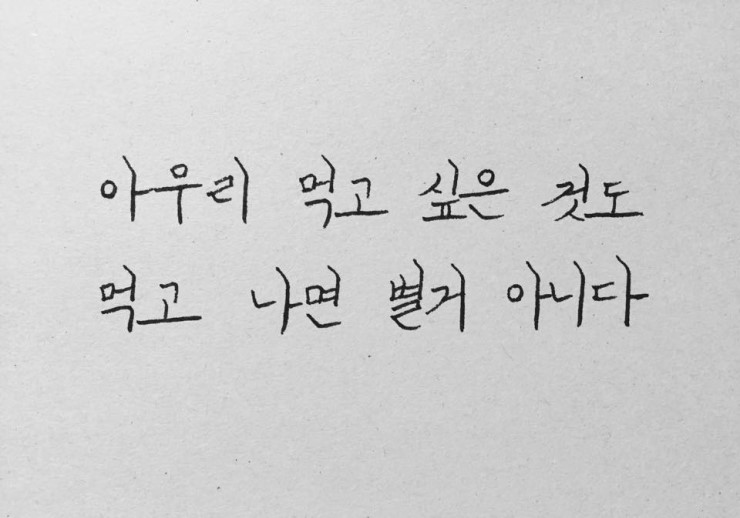 아무리 먹고 싶은 것도
먹고 나면 별거 아니다